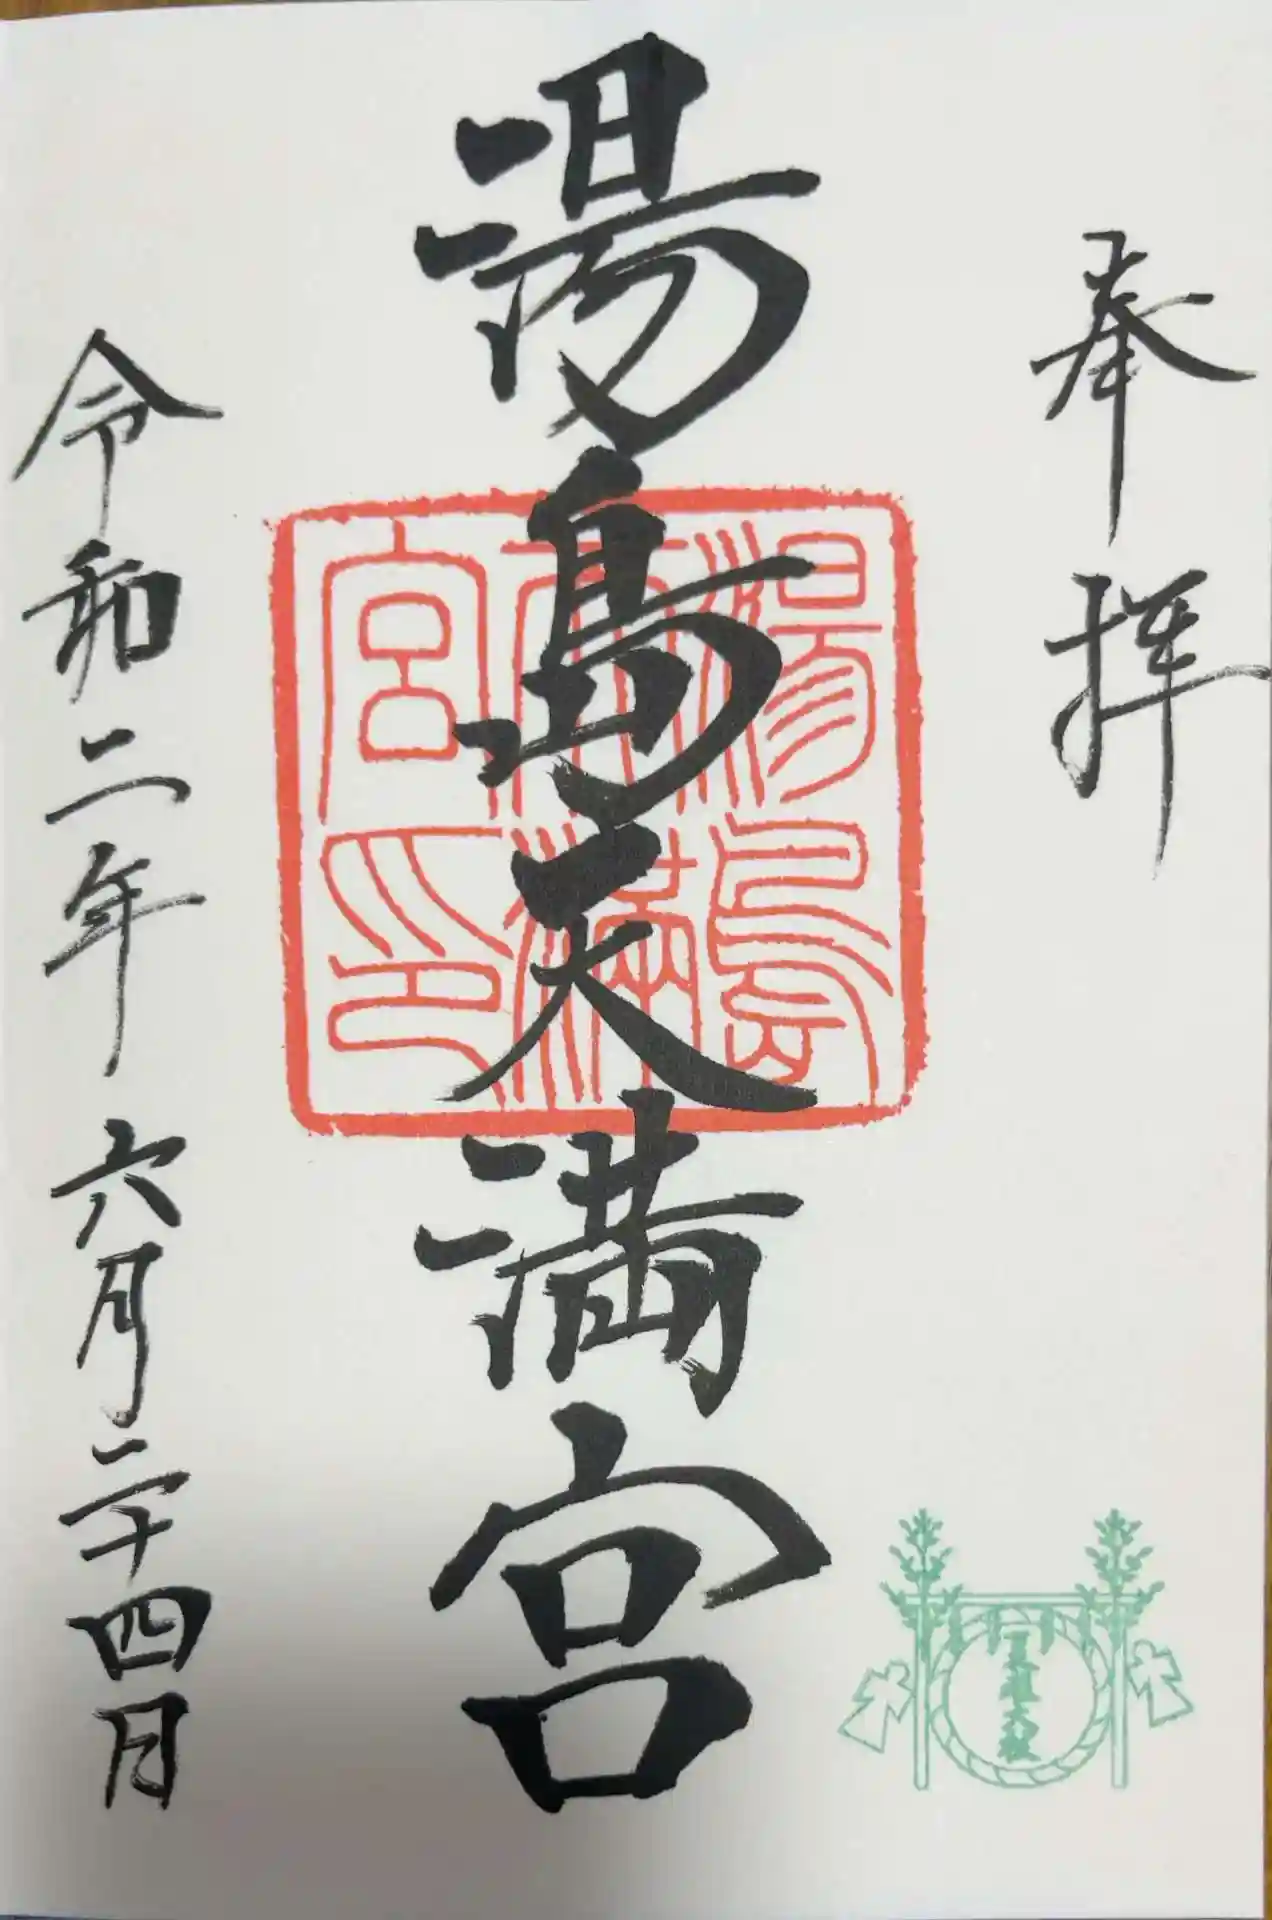 奉拝
湯島天満宮
湯島
天満
宮印
令和二年六月二十四日
夏越大祓